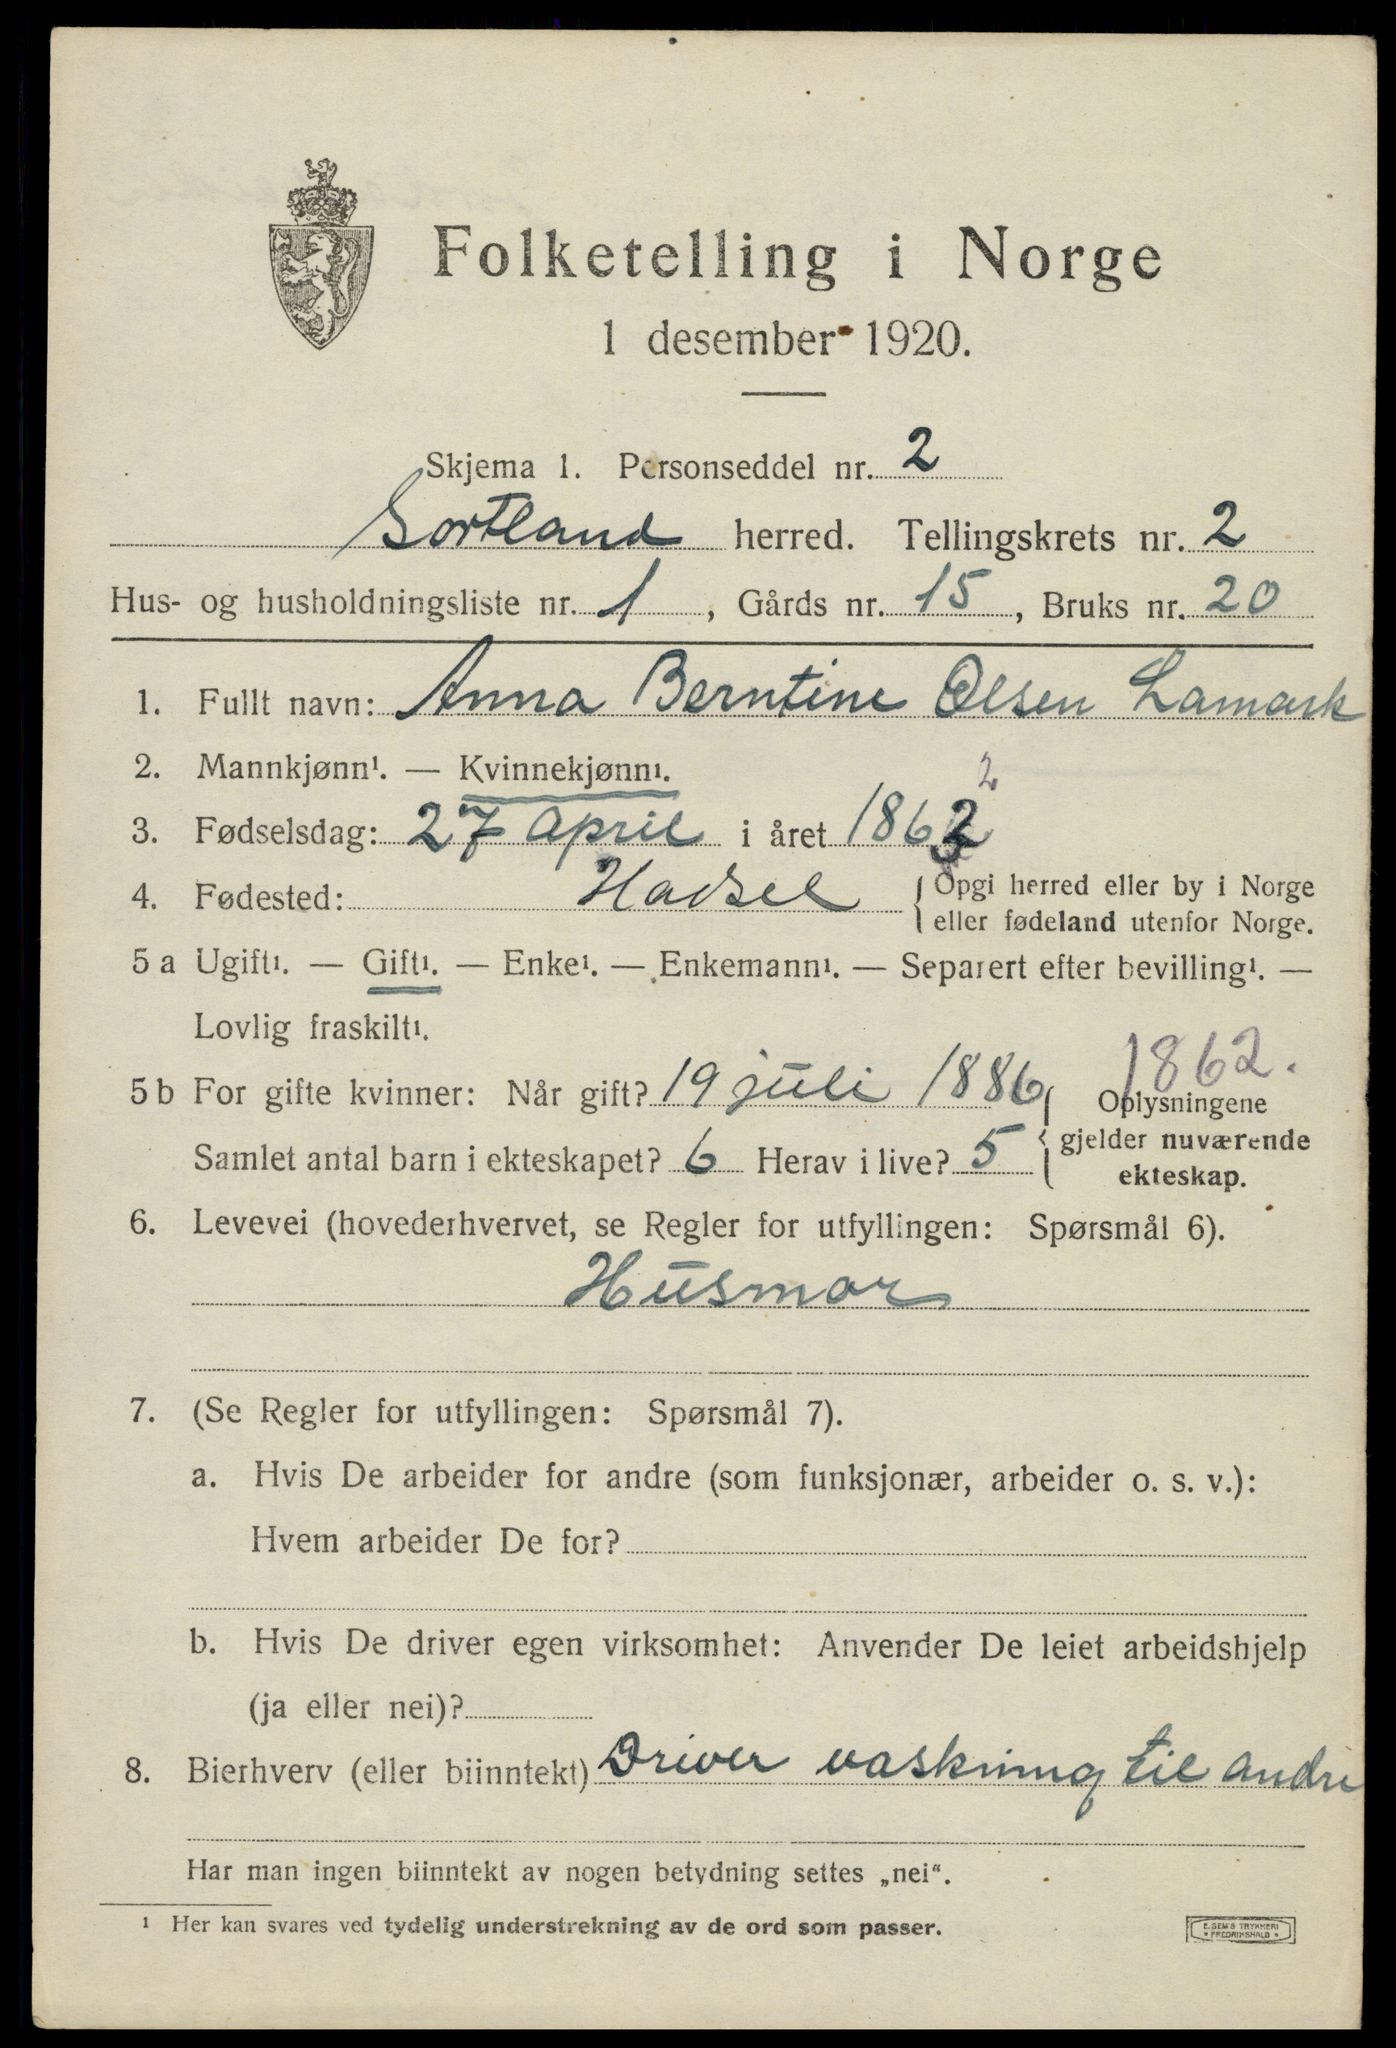 Folketelling i Norge
1 desember 1920.
Skjema 1. Personseddel nr. 2
Sortland herred. Tellingskrets nr. 2
Hus- og husholdningsliste nr. 1, Gårds nr. 15, Bruks nr. 20
1. Fullt navn: Anna Berntine Olsen Lamark
2. Mannkjønn¹. — Kvinnekjønn¹.
2
3. Fødselsdag: 27 april i året 1862
4. Fødested: Hadsel { Opgi herred eller by i Norge
eller fødeland utenfor Norge.
5 a Ugift¹. — Gift¹. — Enke¹. — Enkemann¹. — Separert efter bevilling¹. —
Lovlig fraskilt¹.
1862.
5 b For gifte kvinner: Når gift? 19 juli 1886 { Oplysningene
Samlet antal barn i ekteskapet? 6 Herav i live? 5 gjelder nuværende
ekteskap.
6. Levevei (hovederhvervet, se Regler for utfyllingen: Spørsmål 6).
Husmor
7. (Se Regler for utfyllingen: Spørsmål 7).
a. Hvis De arbeider for andre (som funksjonær, arbeider o. s. v.):
Hvem arbeider De for?
b. Hvis De driver egen virksomhet: Anvender De leiet arbeidshjelp
(ja eller nei)?
8. Bierhverv (eller biinntekt) Driver vaskning til andre
Har man ingen biinntekt av nogen betydning settes „nei“.
¹ Her kan svares ved tydelig understrekning av de ord som passer.
E. SEM'S TRYKKERI
* FREDRIKSHALD *